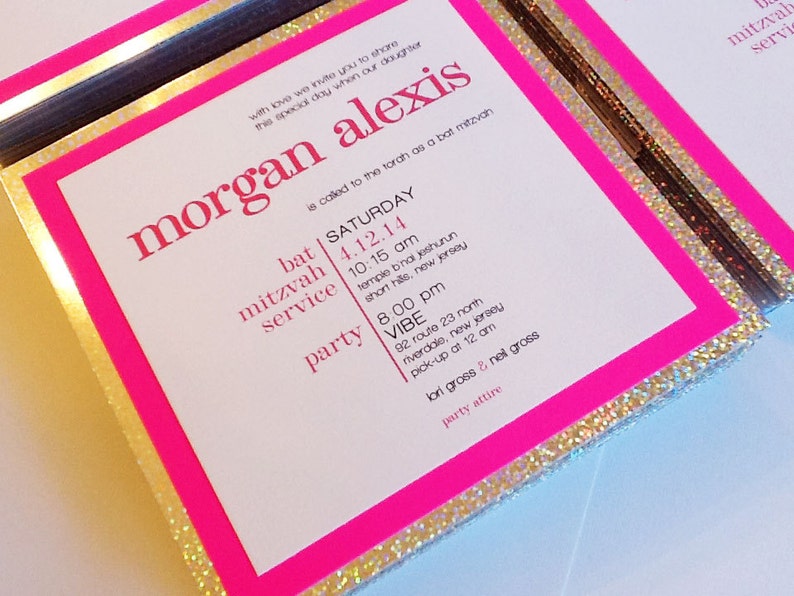 with love we invite you to share
this special day when our daughter
morgan alexis
is called to the torah as a bat mitzvah
bat
mitzvah
service
SATURDAY
4.12.14
10:15 am
temple b'nai jeshurun
short hills, new jersey
party
8:00 pm
VIBE
92 route 23 north
riverdale, new jersey
pick-up at 12 am
lori gross & neil gross
party attire
bat
mitzvah
service